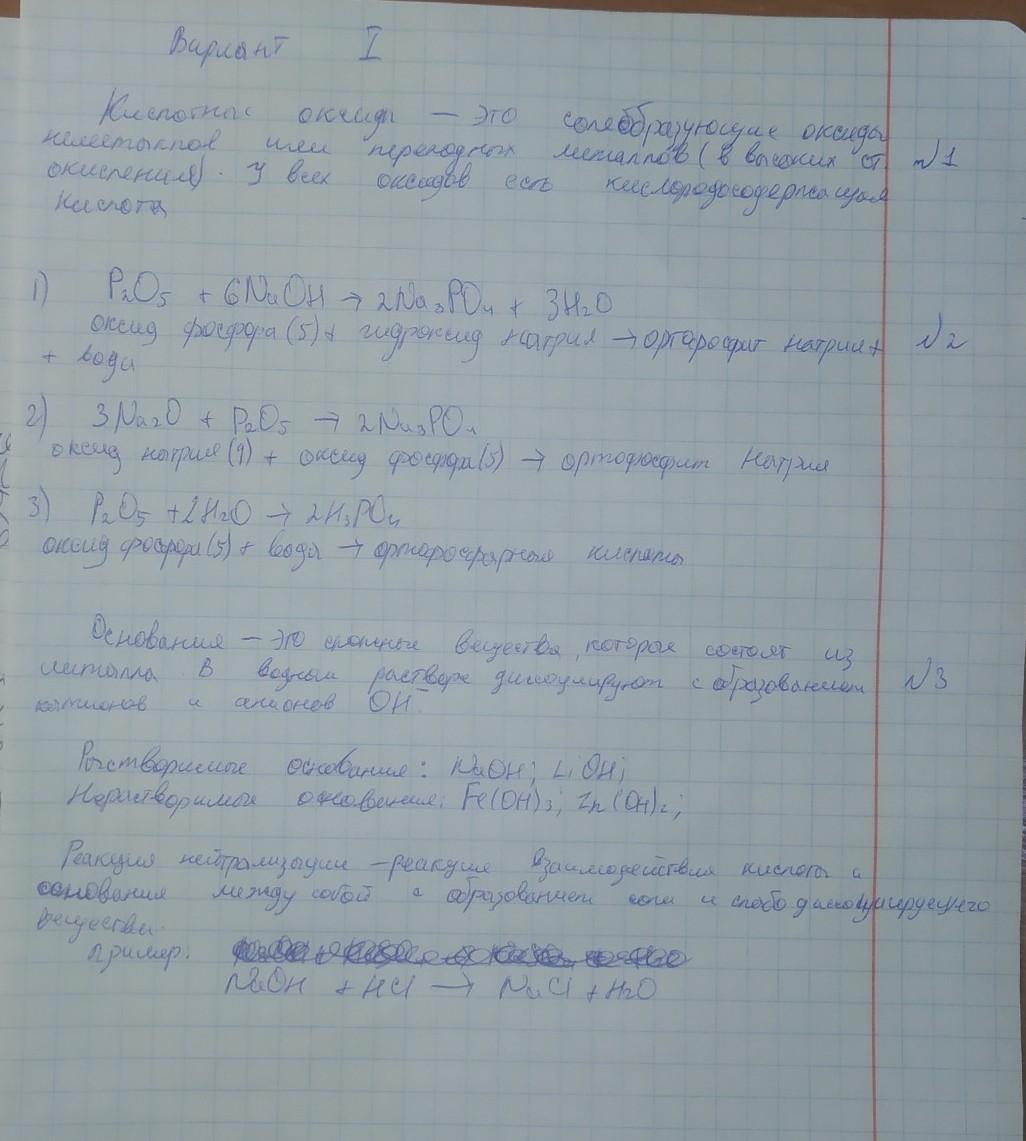 Вариант I
Кислотные оксиды — это солеобразующие оксиды
неметаллов или переходных металлов (в высоких ст. №1
окисления). У всех оксидов есть кислородосодержащая
кислота
1) P₂O₅ + 6NaOH → 2Na₃PO₄ + 3H₂O
оксид фосфора (5) + гидроксид натрия → натрия + №2
+ вода
2) 3Na₂O + P₂O₅ → 2Na₃PO₄
оксид натрия (1) + оксид фосфора (5) → ортофосфит натрия
3) P₂O₅ + 2H₂O → 2H₃PO₄
оксид фосфора (5) + вода → кислота
Основания — это сложные вещества, которые состоят из
металла. В водном растворе диссоциируют с образованием №3
катионов и анионов OH⁻.
Растворимые основания: NaOH; LiOH;
Нерастворимые основания: Fe(OH)₃; Zn(OH)₂;
Реакция нейтрализации — реакция взаимодействия кислоты и
основания между собой с образованием соли и слабо диссоциирующего
вещества.
Пример:
NaOH + HCl → NaCl + H₂O